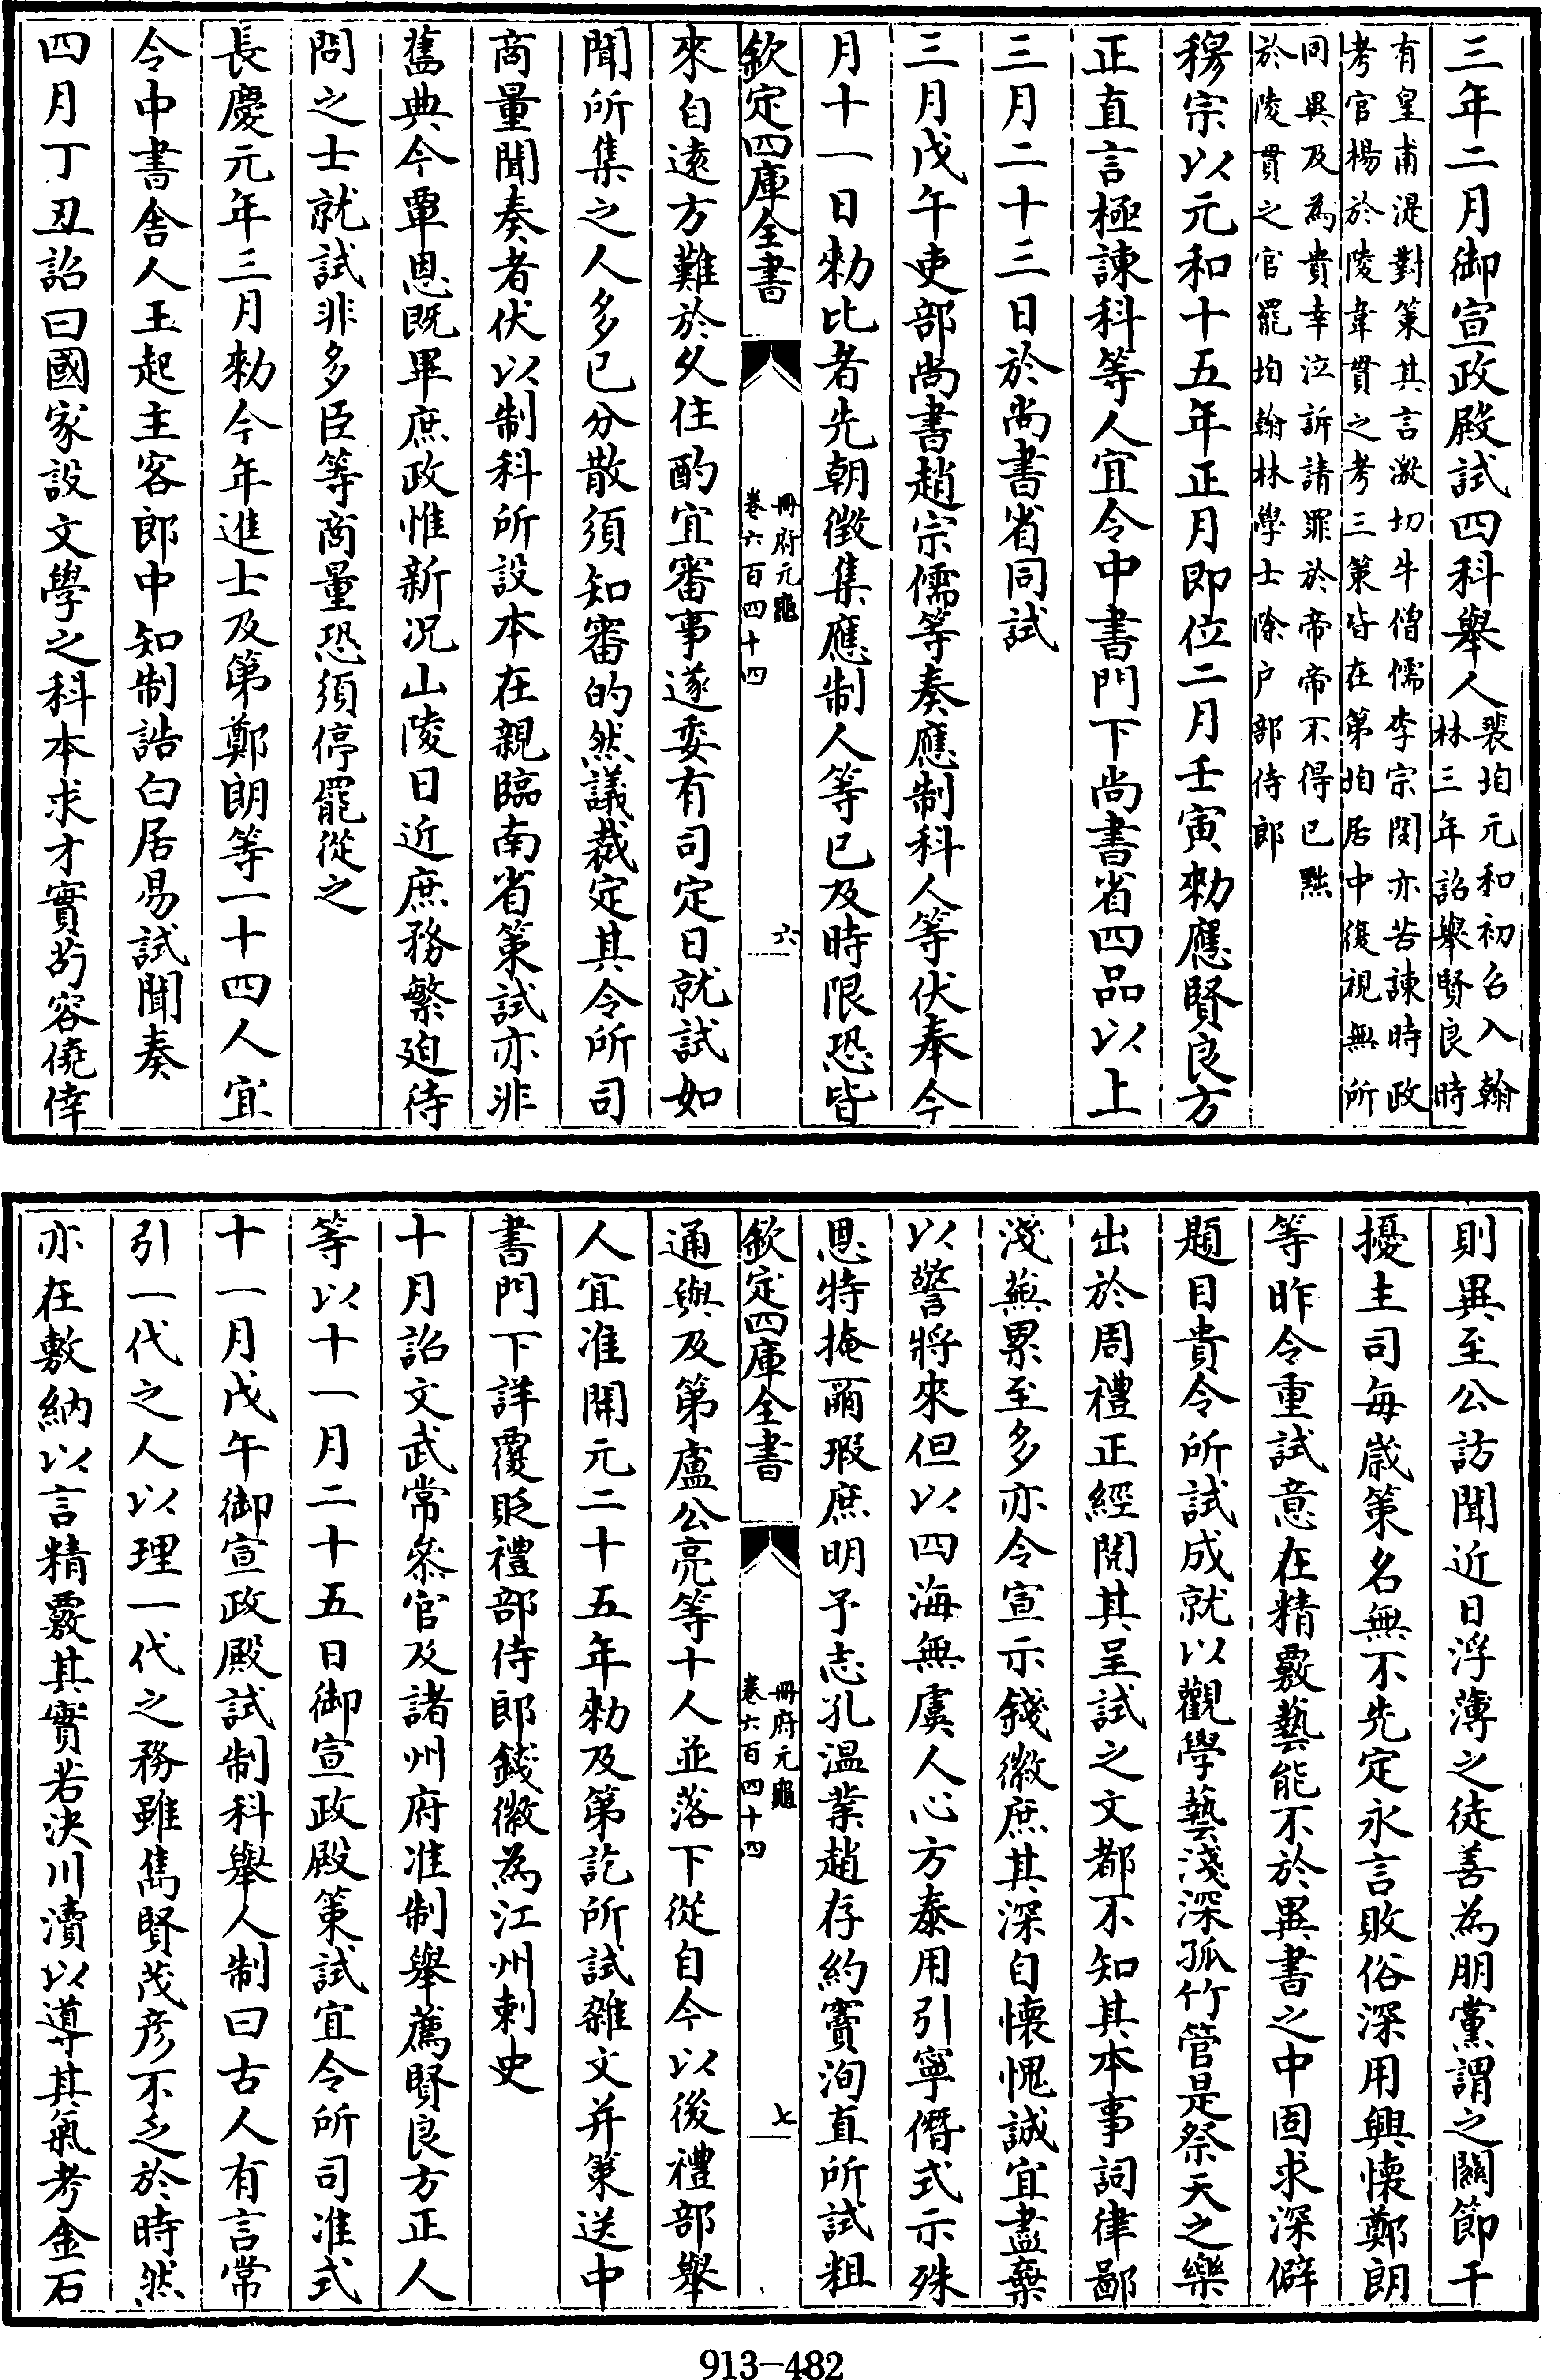 三年二月御宣政殿試四科舉人裴垍元和初召入翰
林三年詔舉賢良時
有皇甫湜對策其言激切牛僧儒李宗閔亦苦諫時政
考官楊於陵韋貫之考三策皆在第垍居中復視無所
同異及為貴幸泣訴請罪於帝帝不得已黜
於陵貫之官罷垍翰林學士除户部侍郎
穆宗以元和十五年正月即位二月壬寅勑應賢良方
正直言極諫科等人宜令中書門下尚書省四品以上
三月二十三日於尚書省同試
三月戊午吏部尚書趙宗儒等奏應制科人等伏奉今
月十一日勑比者先朝徵集應制人等已及時限恐皆
欽定四庫全書
冊府元龜
卷六百四十四
六
來自遠方難於久住酌宜審事遂委有司定日就試如
聞所集之人多已分散須知審的然議裁定其令所司
商量聞奏者伏以制科所設本在親臨南省策試亦非
舊典今覃恩既畢庶政惟新況山陵日近庶務繁廹待
問之士就試非多臣等商量恐須停罷從之
長慶元年三月勑今年進士及第鄭朗等一十四人宜
令中書舍人王起主客郎中知制誥白居易試聞奏
四月丁丑詔曰國家設文學之科本求才實茍容僥倖
則異至公訪聞近日浮薄之徒善為朋黨謂之關節干
擾主司每歲策名無不先定永言敗俗深用興懷鄭朗
等昨令重試意在精覈藝能不於異書之中固求深僻
題目貴令所試成就以觀學藝淺深孤竹管是祭天之樂
出於周禮正經閱其呈試之文都不知其本事詞律鄙
淺蕪累至多亦令宣示錢徽庶其深自懷愧誠宜盡棄
以警將來但以四海無虞人心方泰用引寧僭式示殊
恩特掩爾瑕庶明予志孔温業趙存約竇洵直所試粗
欽定四庫全書
冊府元龜
卷六百四十四
七
通與及第盧公亮等十人並落下從自今以後禮部舉
人宜准開元二十五年勑及第訖所試雜文并策送中
書門下詳覆貶禮部侍郎錢徽為江州刺史
十月詔文武常叅官及諸州府准制舉薦賢良方正人
等以十一月二十五日御宣政殿策試宜令所司准式
十一月戊午御宣政殿試制科舉人制曰古人有言常
引一代之人以理一代之務雖雋賢茂彦不乏於時然
亦在敷納以言精覈其實若決川瀆以導其氣考金石
913-482